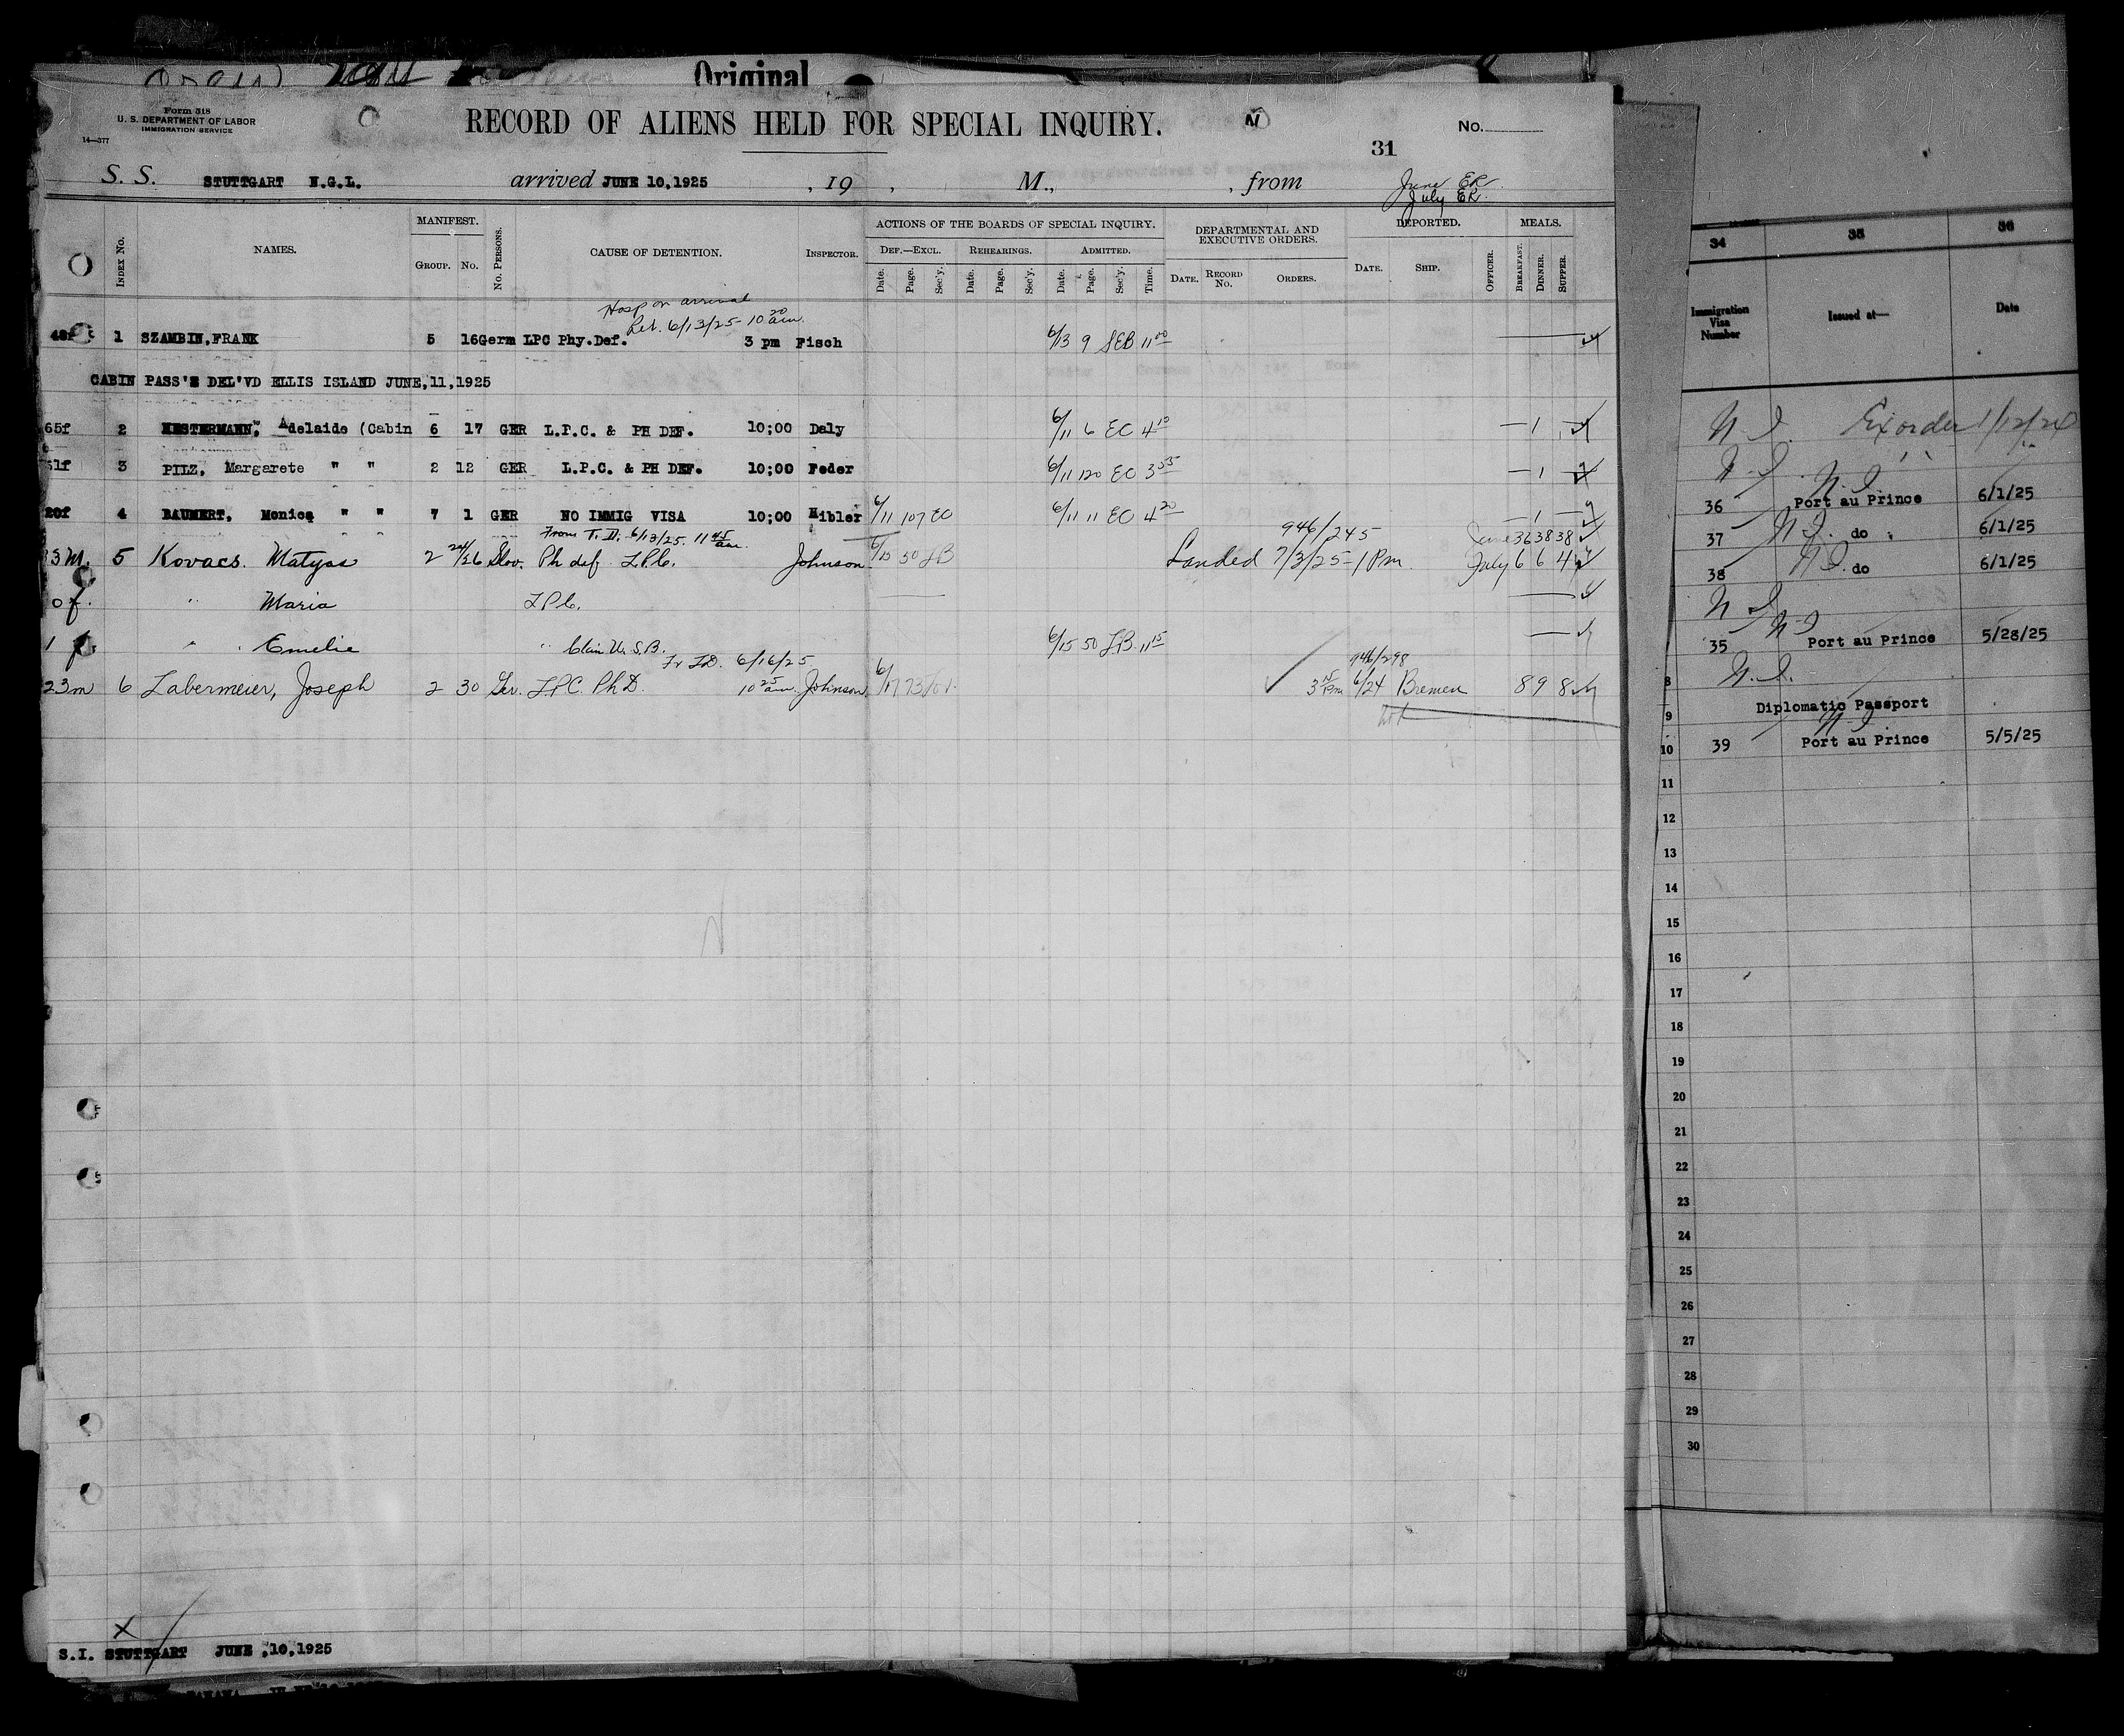 Original
Form 518
U. S. DEPARTMENT OF LABOR
IMMIGRATION SERVICE
14—377
RECORD OF ALIENS HELD FOR SPECIAL INQUIRY.
No.
31
S. S. STUTTGART N.G.L. arrived JUNE 10,1925 , 19 , M., , from
June ER
July ER.
INDEX No. NAMES. MANIFEST. GROUP. No. No. PERSONS. CAUSE OF DETENTION. INSPECTOR. ACTIONS OF THE BOARDS OF SPECIAL INQUIRY. DEPARTMENTAL AND EXECUTIVE ORDERS. DEPORTED. MEALS.
DEF.—EXCL. REHEARINGS. ADMITTED.
Date. Page. Sec'y. Date. Page. Sec'y. Date. Page. Sec'y. Time. DATE. RECORD No. ORDERS. DATE. SHIP. OFFICER. BREAKFAST. DINNER. SUPPER.
Hosp on arrival
Rel. 6/13/25 - 10 20 am.
1 SZAMBIN,FRANK 5 16 Germ LPC Phy.Def. 3 pm Fisch 6/13 9 SEB 11 00
CABIN PASS'S DEL'VD ELLIS ISLAND JUNE,11,1925
65f 2 Adelaide (Cabin 6 17 GER L.P.C. & PH DEF. 10;00 Daly 6/11 6 EC 4 10 — 1 —
51f 3 PILZ, Margarete " " 2 12 GER L.P.C. & PH DEF. 10;00 Feder 6/11 120 EC 3 35 — 1 —
20f 4 BAUMERT, Monica " " 7 1 GER NO IMMIG VISA 10;00 Hibler 6/11 107 EC 6/11 11 EC 4 20 — 1 —
From T. D. 6/13/25. 11 45 am. 946/245 June 36 38 38
3 M. 5 Kovacs. Matyas 2 24/26 Slov. Ph def. L.P.C. Johnson 6/15 50 LB Landed 7/3/25 - 1 Pm. July 6 6 4
0 f. " Maria L.P.C. —
1 f. " Emelie " Claim U.S.B. 6/15 50 L.B. 11 15 —
Fr T.D. 6/16/25 946/298
23m 6 Labermeier, Joseph 2 30 Ger. L.P.C. Ph D. 10 25 am. Johnson 6/17 73 3 15 Pm 6/24 Bremen 8 9 8
S.I. STUTTGART JUNE ,10,1925
34 35 36
Immigration Visa Number Issued at— Date
N. I. Ex order 1/12/24
N. I.
N. I.
36 Port au Prince 6/1/25
37 N.I. do 6/1/25
38 N.I. do 6/1/25
N I
N I
35 Port au Prince 5/28/25
8 N. I.
9 Diplomatic Passport
N. I.
10 39 Port au Prince 5/5/25
11
12
13
14
15
16
17
18
19
20
21
22
23
24
25
26
27
28
29
30